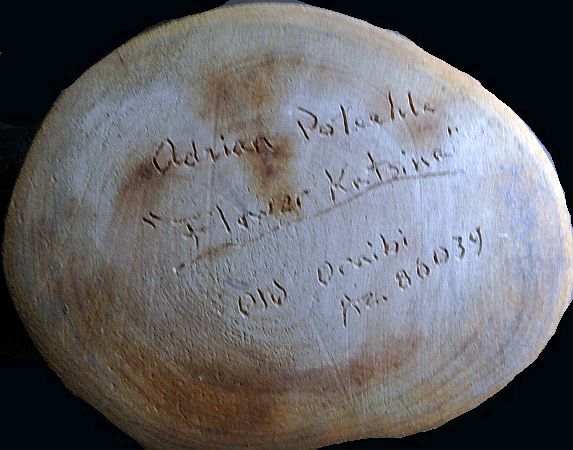 Adrian Poleahla
"Flower Katsina"
Old Oraibi
Az. 86039